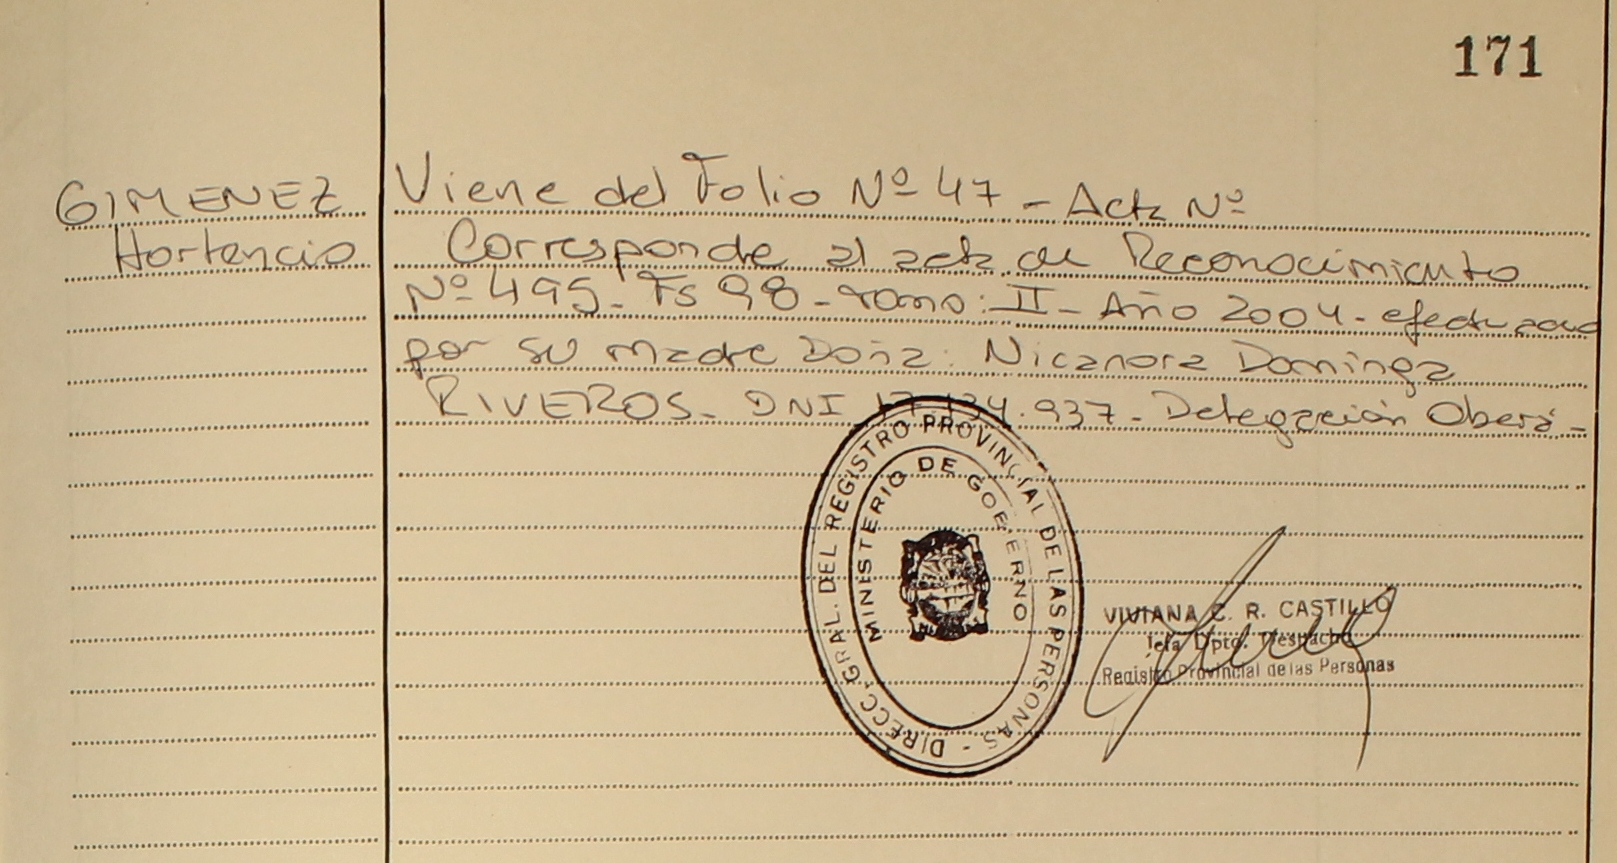 171
GIMENEZ
Hortencio
Viene del Folio Nº 47 - Acta Nº
Corresponde al acta de Reconocimiento
Nº 495 - Fs 98 - Tomo: II - Año 2004 - efectuado
por su madre Doña: Nicanora Dominga
RIVEROS - DNI 17.134.937 - Delegación Oberá -
DIRECC. GRAL. DEL REGISTRO PROVINCIAL DE LAS PERSONAS -
MINISTERIO DE GOBIERNO
VIVIANA C. R. CASTILLO
Jefa Dpto. Despacho
Registro Provincial de las Personas